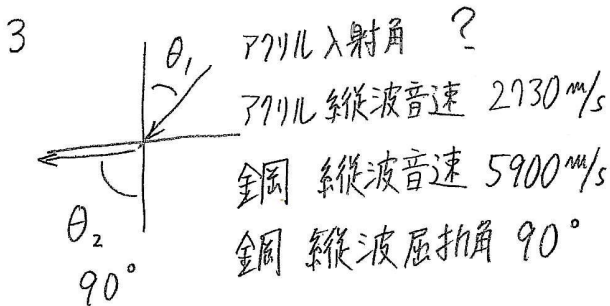 3
θ1
アクリル入射角 ?
アクリル縦波音速 2730m/s
鋼 縦波音速 5900m/s
鋼 縦波屈折角 90°
θ2
90°